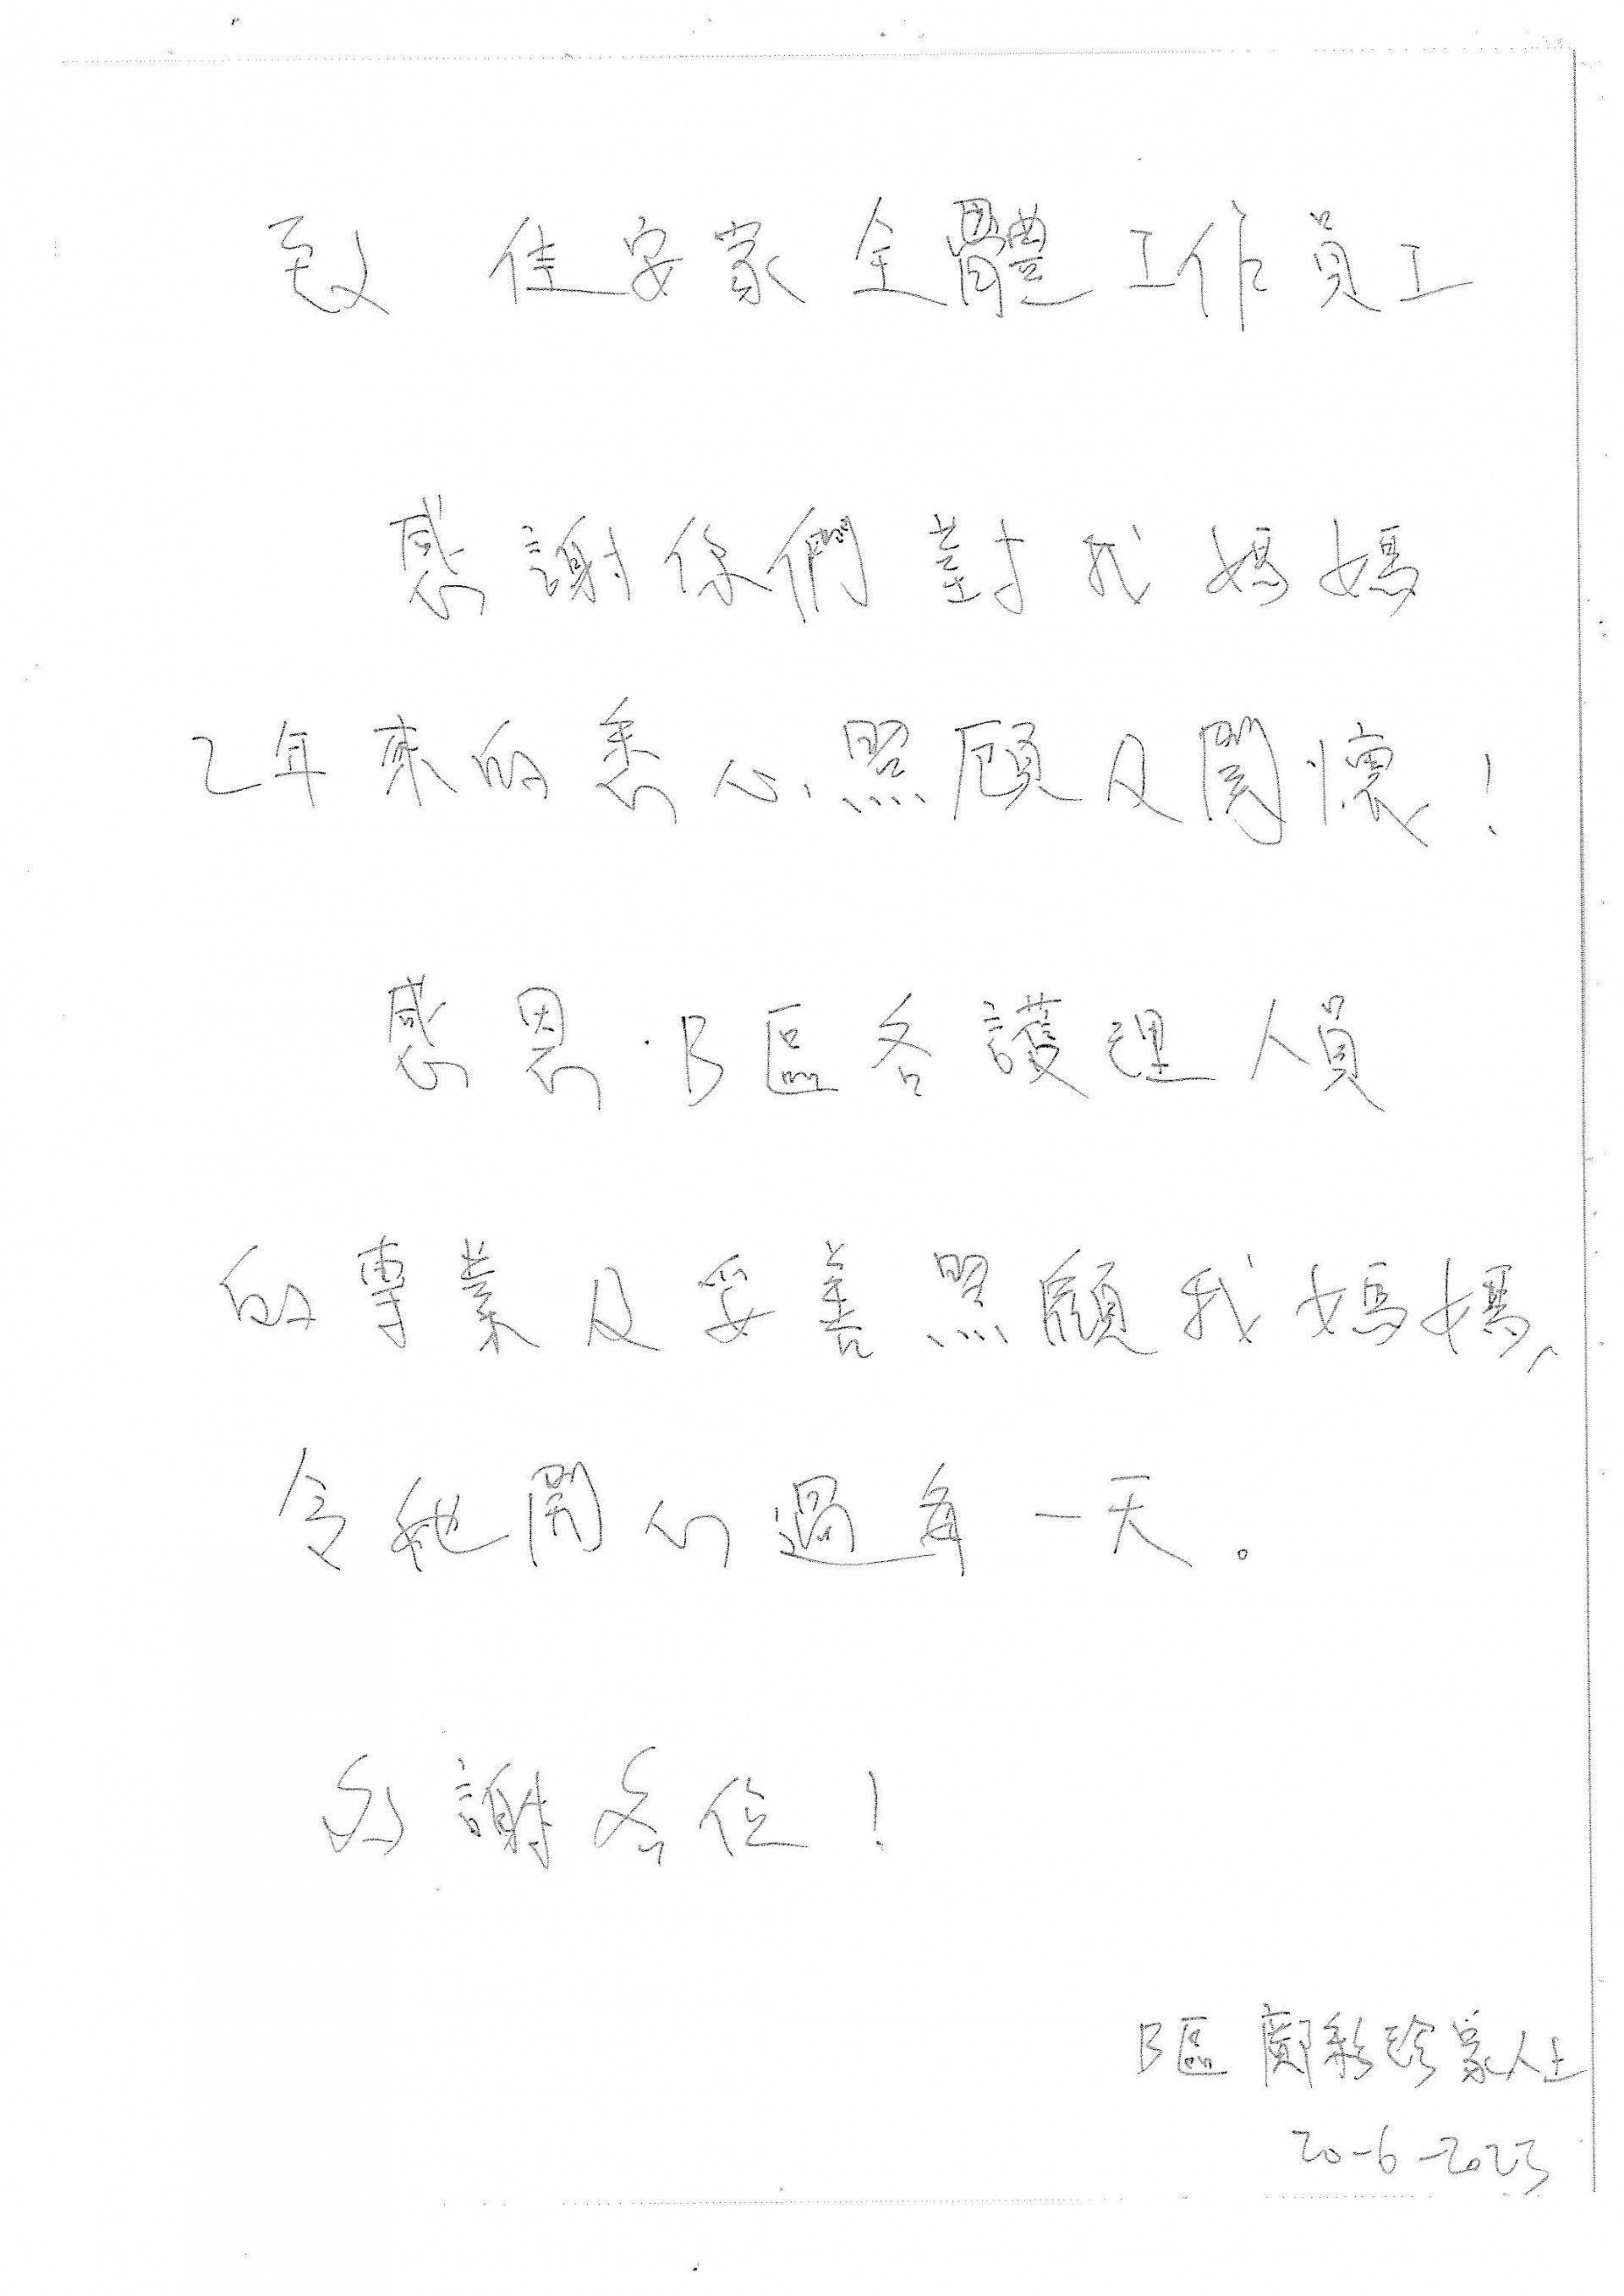 致 佳安家全體工作員工
感謝你們對我媽媽
2年來的悉心照顧及關懷!
感恩.B區各護理人員
的專業及妥善照顧我媽媽,
令她開心過每一天。
多謝各位!
B區 鄺彩珍家人上
20-6-2023